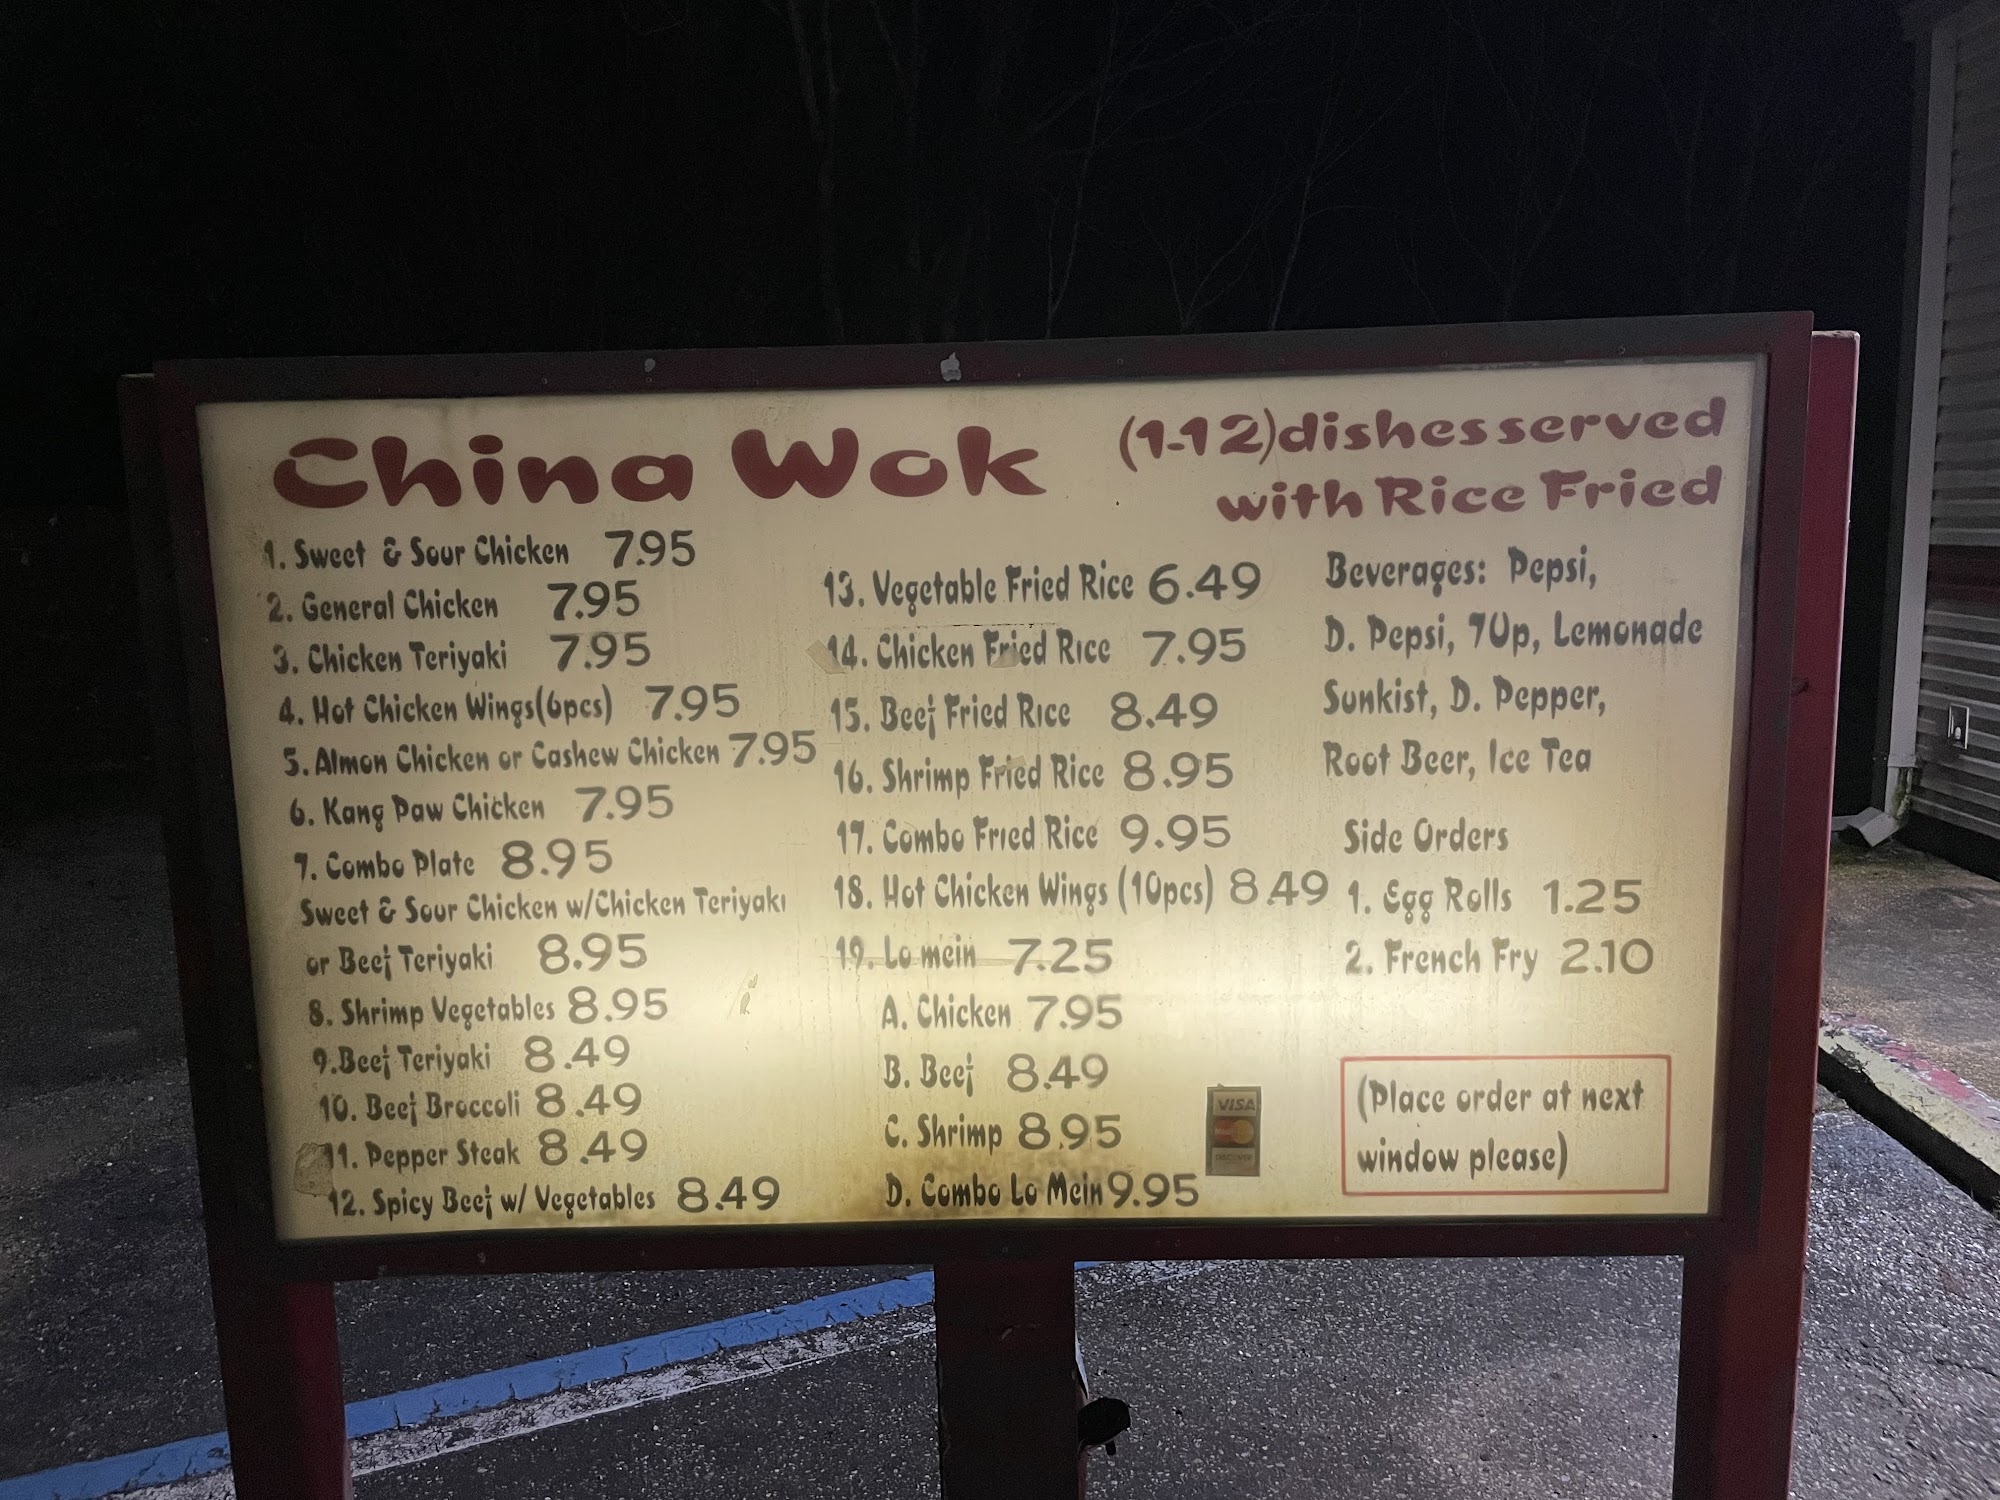 China Wok
(1-12)dishes served
with Rice Fried
1. Sweet & Sour Chicken 7.95
2. General Chicken 7.95
3. Chicken Teriyaki 7.95
4. Hot Chicken Wings(6pcs) 7.95
5. Almon Chicken or Cashew Chicken 7.95
6. Kang Paw Chicken 7.95
7. Combo Plate 8.95
Sweet & Sour Chicken w/Chicken Teriyaki
or Beef Teriyaki 8.95
8. Shrimp Vegetables 8.95
9.Beef Teriyaki 8.49
10. Beef Broccoli 8.49
11. Pepper Steak 8.49
12. Spicy Beef w/ Vegetables 8.49
13. Vegetable Fried Rice 6.49
14. Chicken Fried Rice 7.95
15. Beef Fried Rice 8.49
16. Shrimp Fried Rice 8.95
17. Combo Fried Rice 9.95
18. Hot Chicken Wings (10pcs) 8.49
19. Lo mein 7.25
A. Chicken 7.95
B. Beef 8.49
C. Shrimp 8.95
D. Combo Lo Mein 9.95
Beverages: Pepsi,
D. Pepsi, 7Up, Lemonade
Sunkist, D. Pepper,
Root Beer, Ice Tea
Side Orders
1. Egg Rolls 1.25
2. French Fry 2.10
VISA
MasterCard
DISCOVER
(Place order at next
window please)